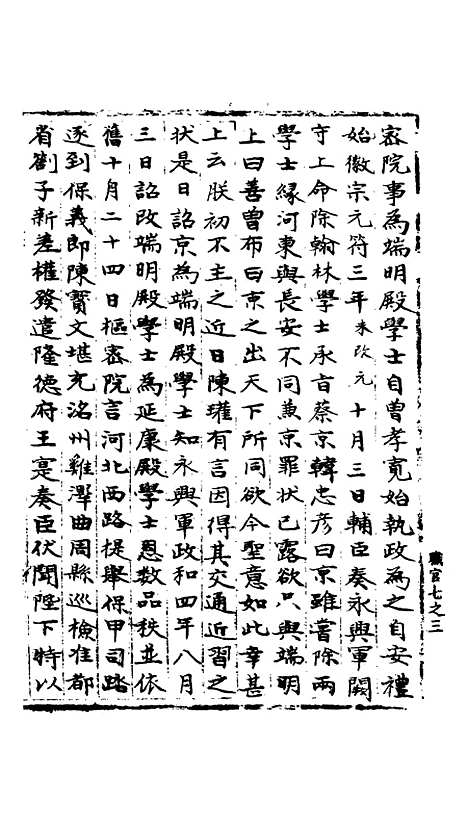 宻院事為端明殿學士自曾孝寛始執政為之自安禮
始徽宗元符三年未改元十月三日輔臣奏永興軍闕
守上命除翰林學士承旨蔡京韓忠彦曰京雖嘗除兩
學士緣河東與長安不同兼京罪状已露欲只與端明
上曰善曾布曰京之出天下所同欲今聖意如此幸甚
上云朕初不主之近日陳瓘有言因得其交通近習之
状是日詔京為端明殿學士知永興軍政和四年八月
三日詔改端明殿學士為延康殿學士恩數品秩並依
舊十月二十四日樞宻院言河北西路提舉保甲司踏
逐到保義郎陳寶文堪充洺州雞澤曲周縣巡檢准都
省劄子新差權發遣隆德府王寔奏臣伏聞陛下特以
職官七之三